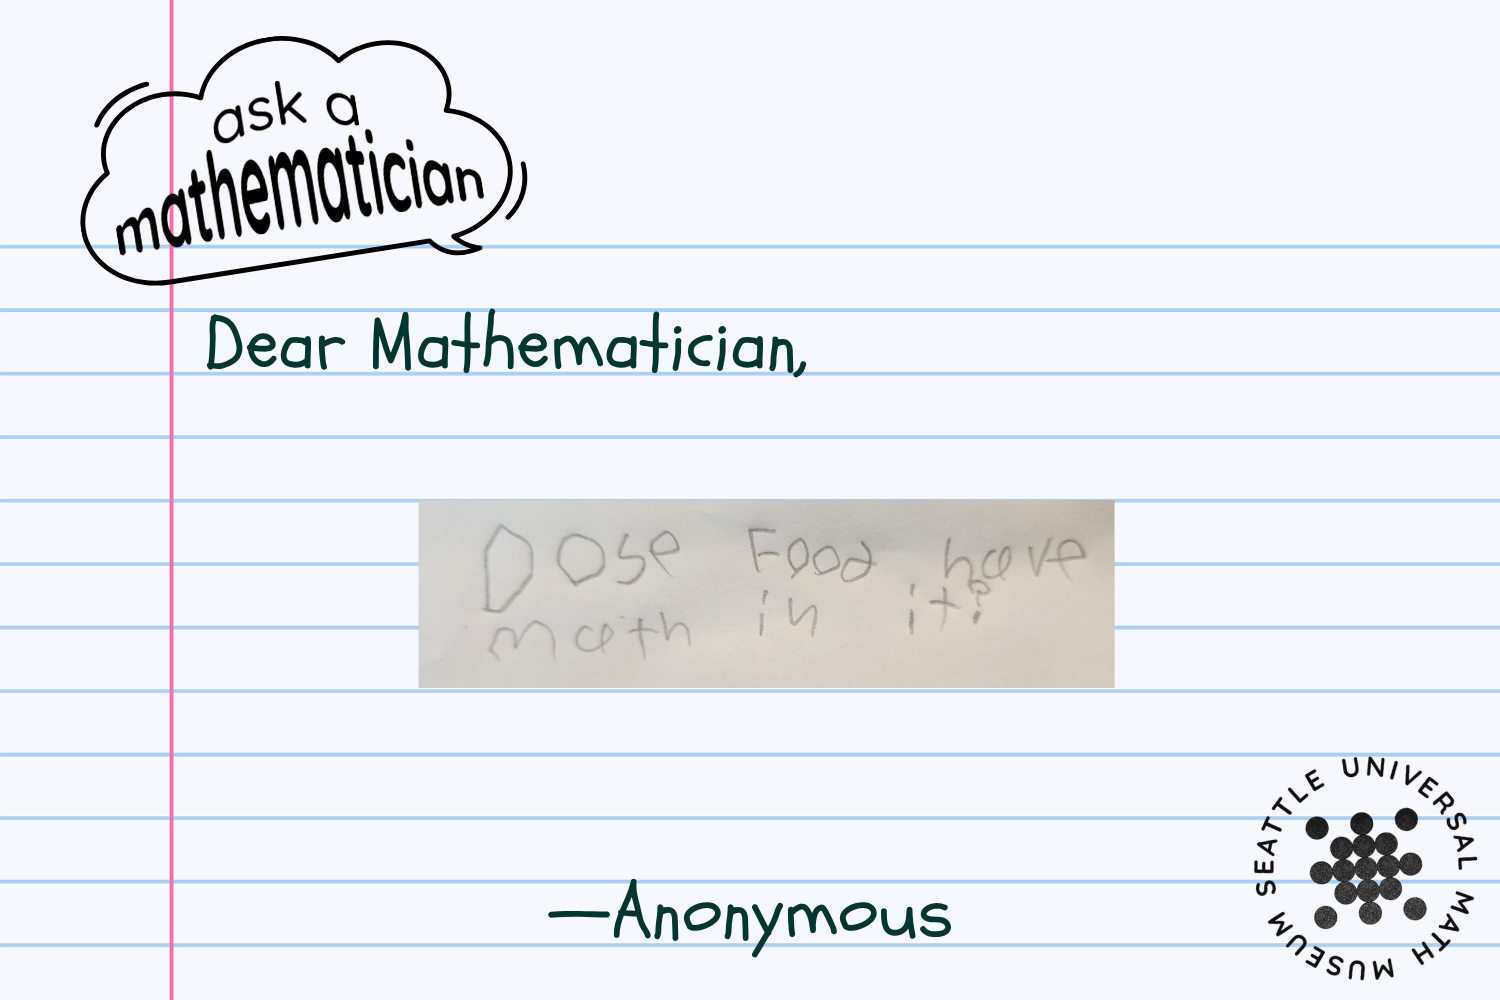 ask a
mathematician
Dear Mathematician,
Dose Food have
math in it?
—Anonymous
SEATTLE UNIVERSAL MATH MUSEUM